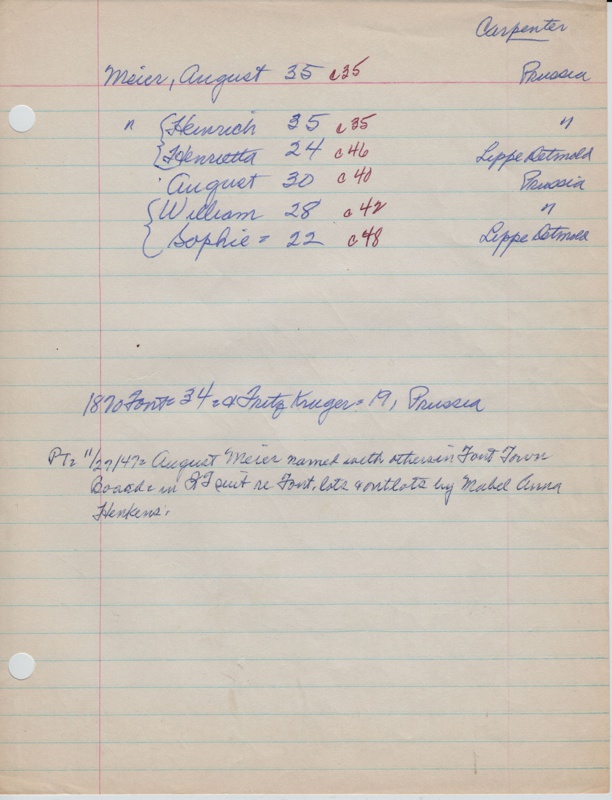 Carpenter
Meier, August 35 c35 Prussia
" Heinrich 35 c35 "
Henrietta 24 c46 Lippe Detmold
August 30 c40 Prussia
William 28 c42 "
Sophie = 22 c48 Lippe Detmold
1870 Font = 34 = & Fritz Kruger = 19, Prussia
PT = 11/27/47 = August Meier named with others in Font Town
Board = in suit re Font. lots & outlots by Mabel Anna
Henkens.